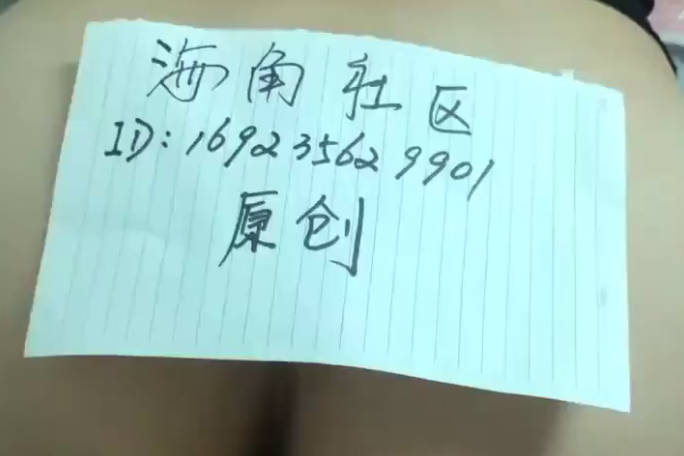 海角社区
ID:169235629901
原创